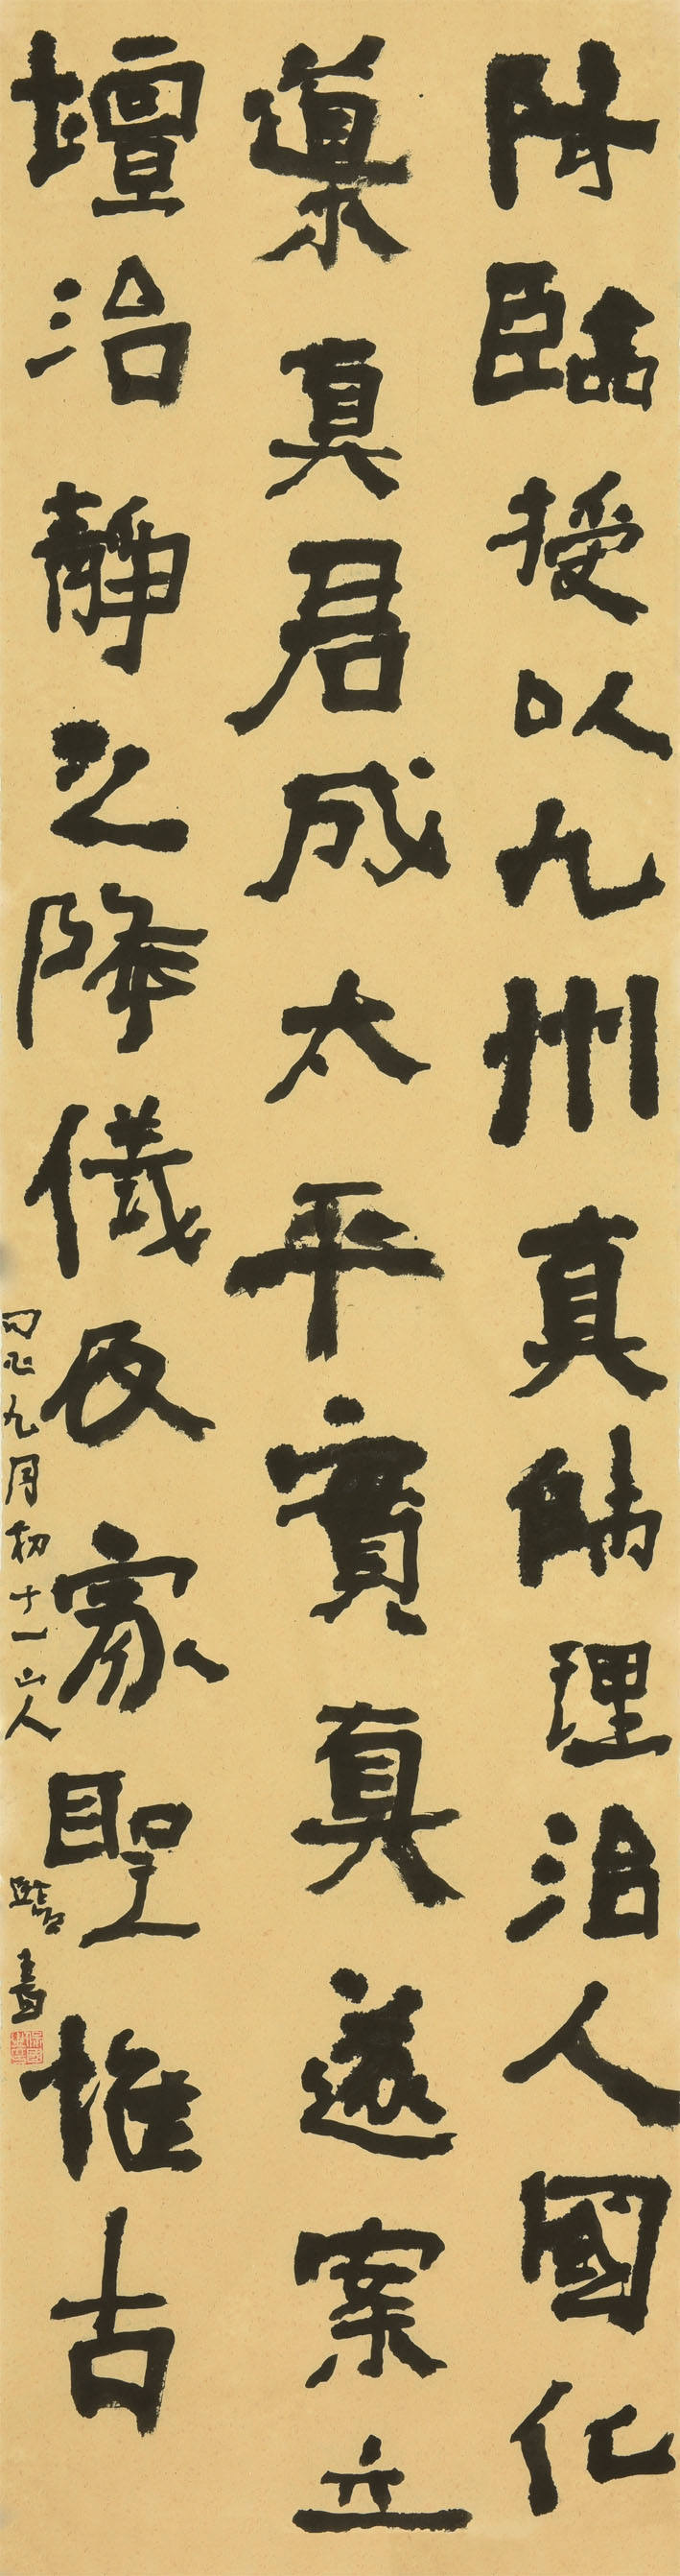 降臨授以九州真師理治人國化
導真君成太平實真遂案立
壇治靜之降儀及家聖惟古
九月初十一山人
書